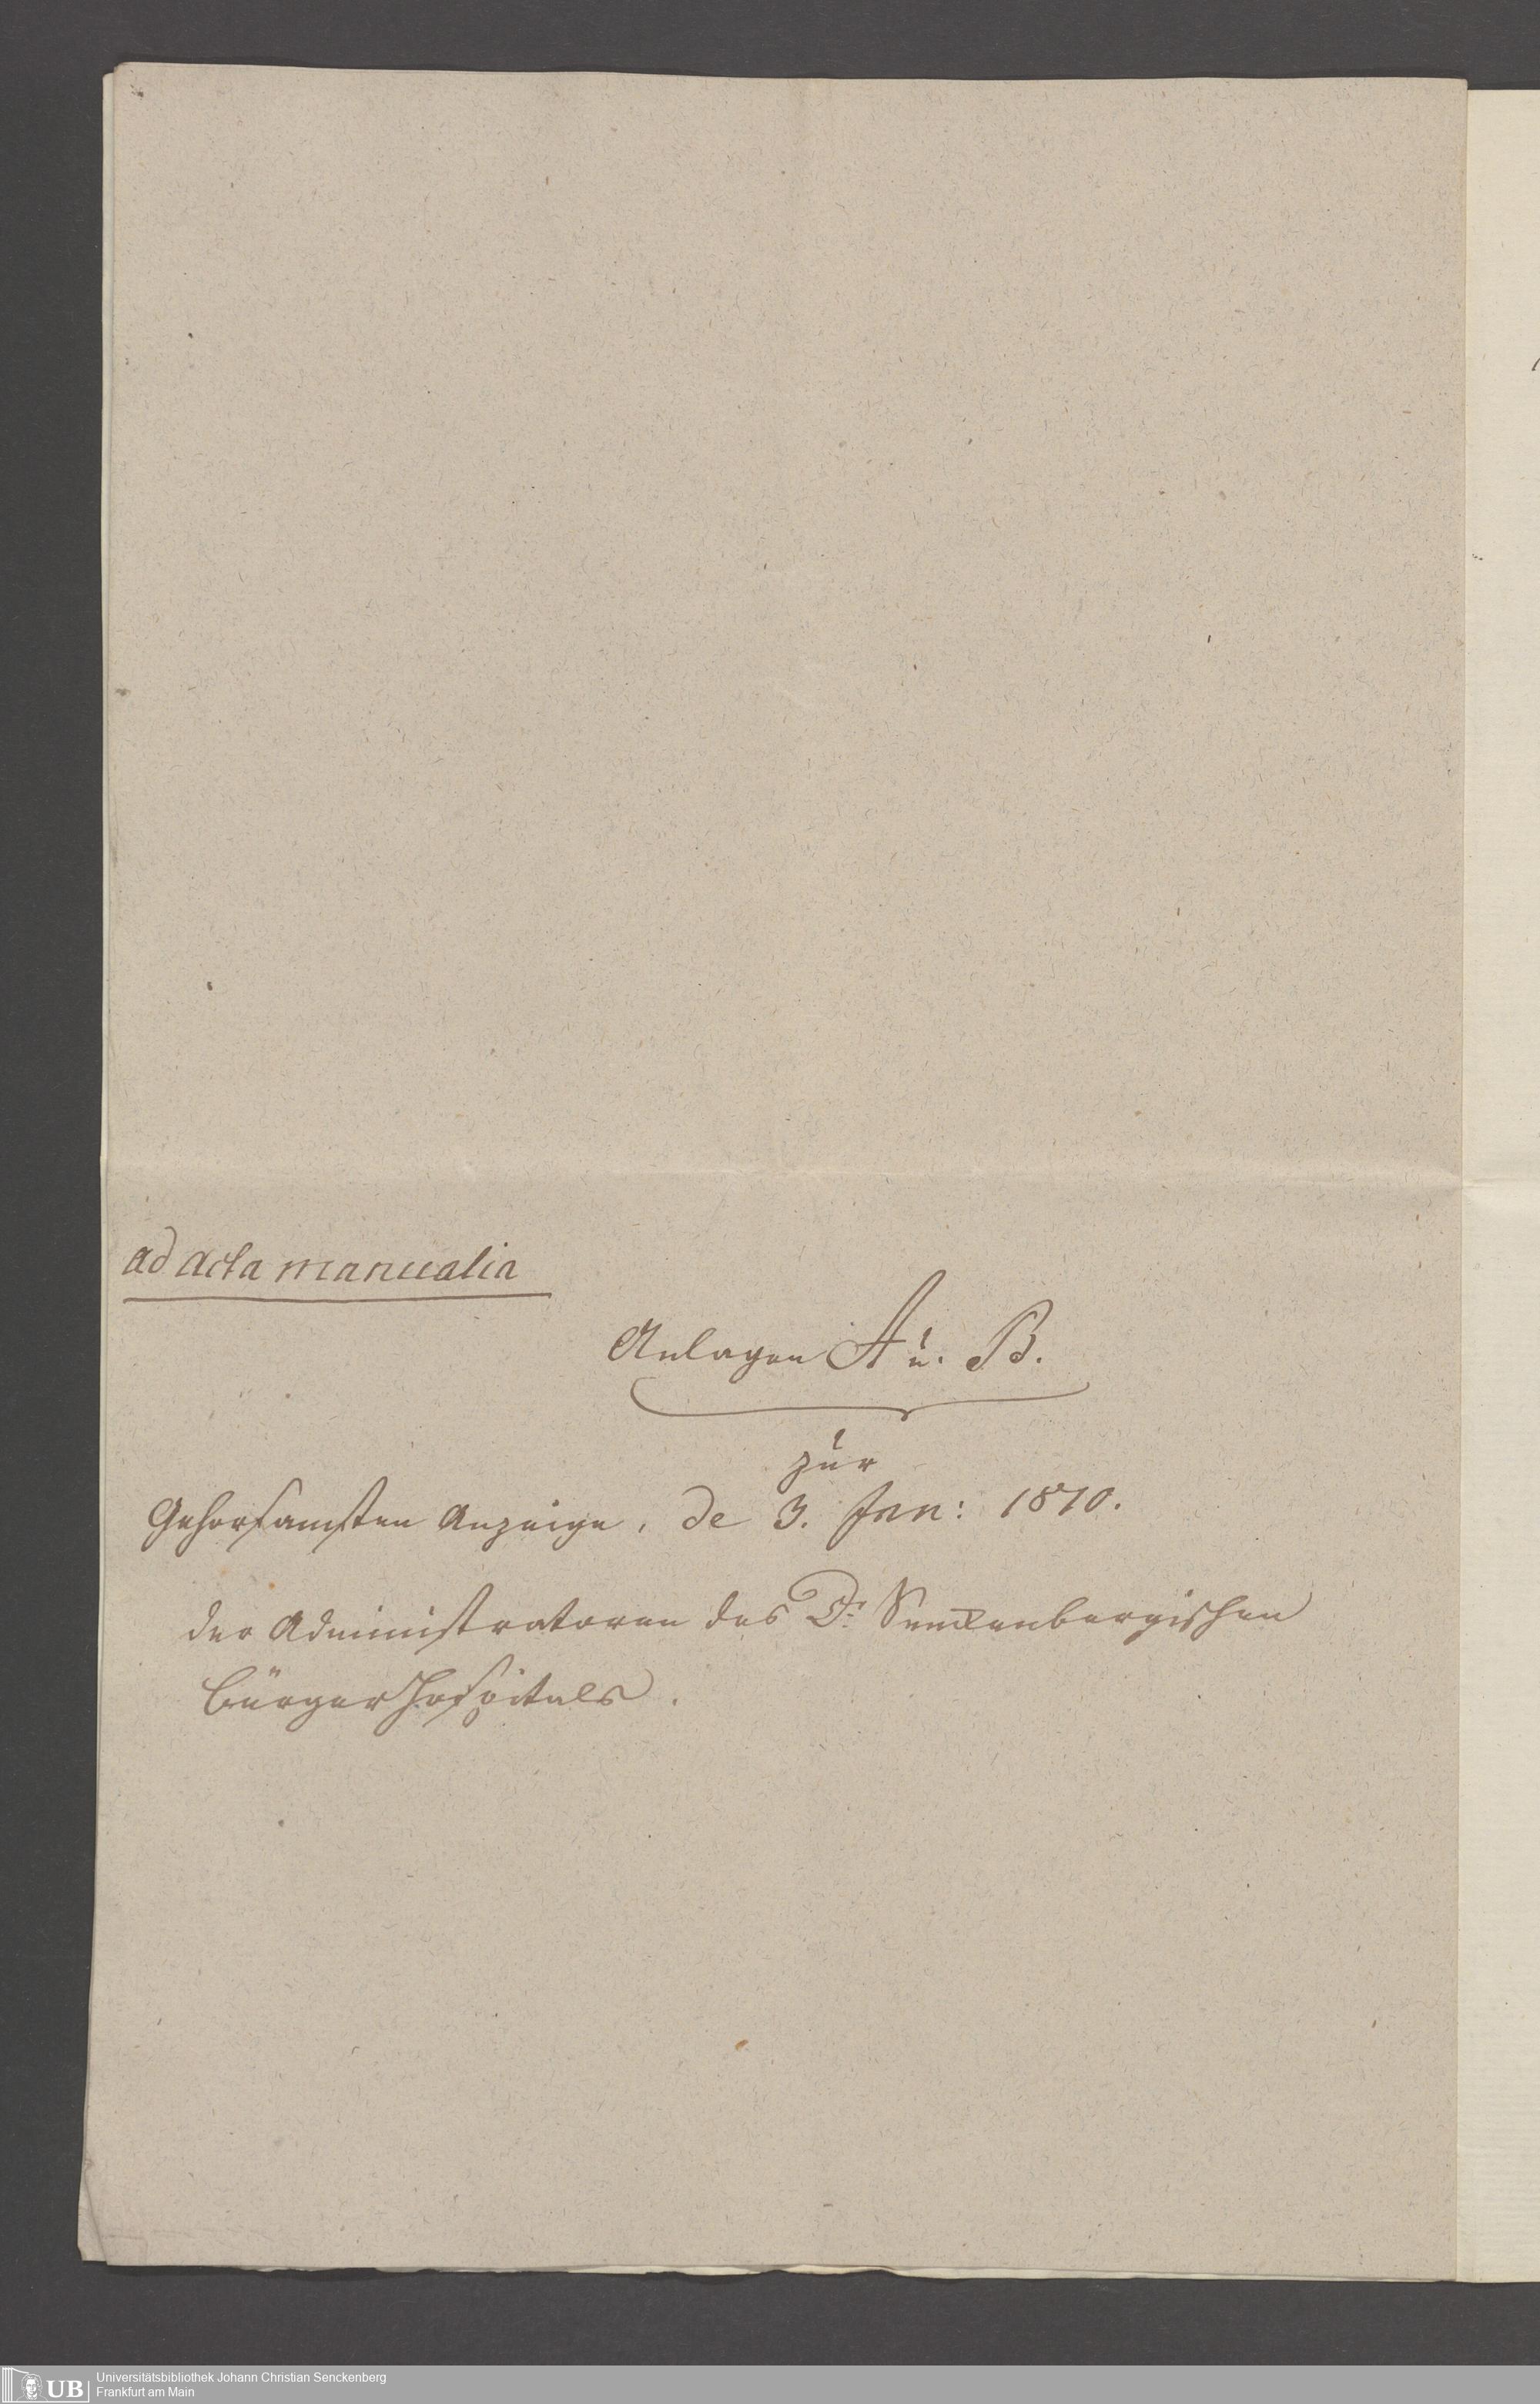 ad acta manualia
Anlagen A u. B.
zur
Gehorsamsten Anzeige, de 3. Jan: 1870.
der Administratoren des Dr. Senckenbergischen
Bürgerhospitals.
UB
Universitätsbibliothek Johann Christian Senckenberg
Frankfurt am Main